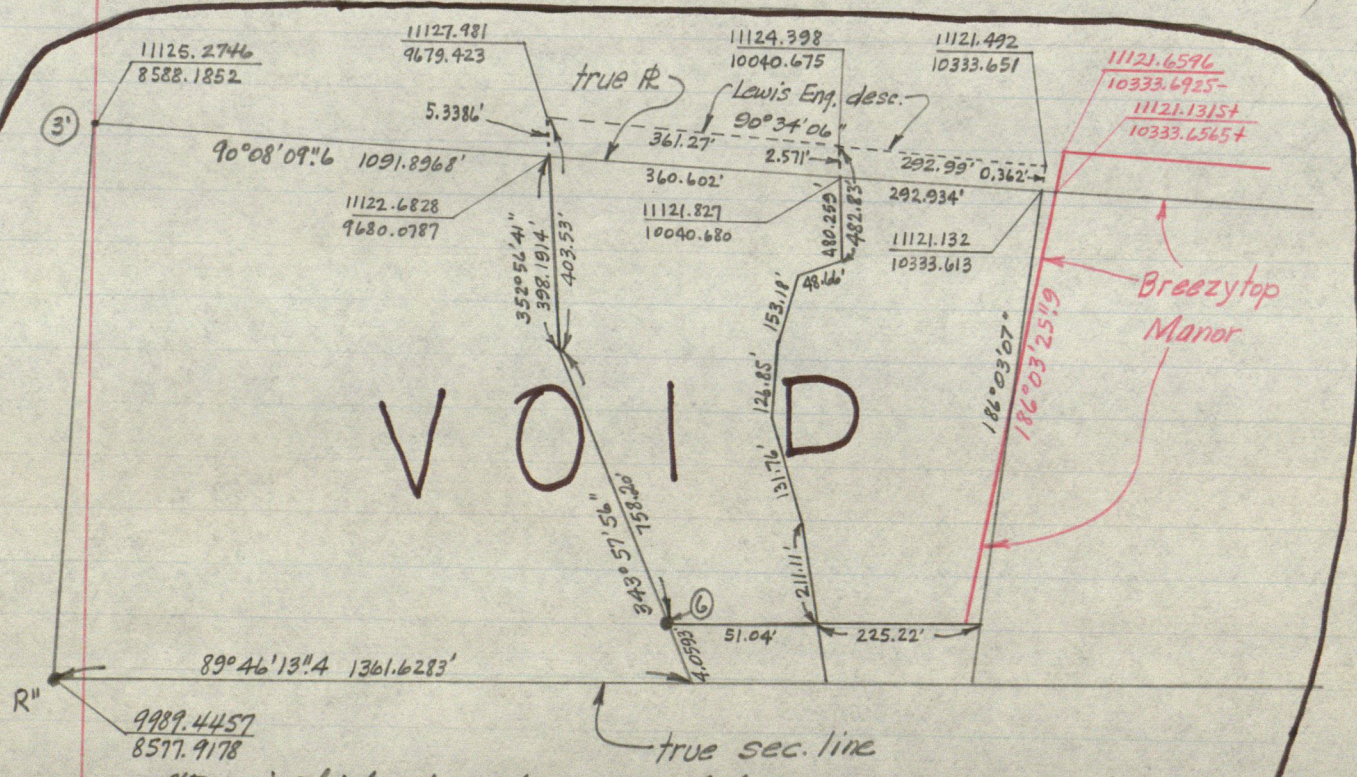 11125.2746
8588.1852
11127.981
9679.423
11124.398
10040.675
11121.492
10333.651
11121.6596
10333.6925-
11121.1315+
10333.6565+
true PL
Lewis Eng. desc.
90°34'06"
5.3386'
361.27'
2.571'
292.99'
0.362'
3'
90°08'09".6 1091.8968'
360.602'
292.934'
11122.6828
9680.0787
11121.827
10040.680
11121.132
10333.613
352°56'41"
398.1914'
403.53'
480.259'
482.83'
48.66'
153.18'
126.85'
131.76'
211.11'
186°03'07"
186°03'25".9
Breezytop
Manor
VOID
343°57'56"
758.20'
6
51.04'
225.22'
4.0593'
89°46'13".4 1361.6283'
R"
9989.4457
8577.9178
true sec. line